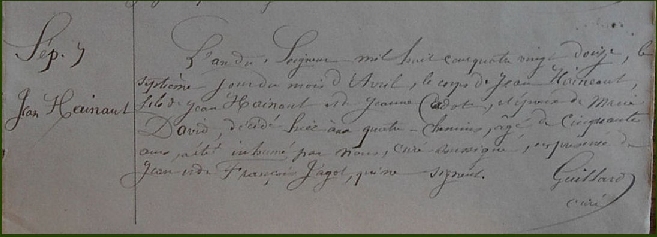 Sép. 7
Jean Hainaut
L'an du Seigneur mil huit cent quatre vingt douze, le
septième jour du mois d'Avril, le corps de Jean Hainaut,
fils de Jean Hainaut et de Jeanne Cadot, et époux de Marie
David, décédé hier aux quatre-chemins, âgé de cinquante
ans, a été inhumé par nous, curé soussigné, en présence de
Jean et de François Jagot, qui ne signent.
Guillard
curé